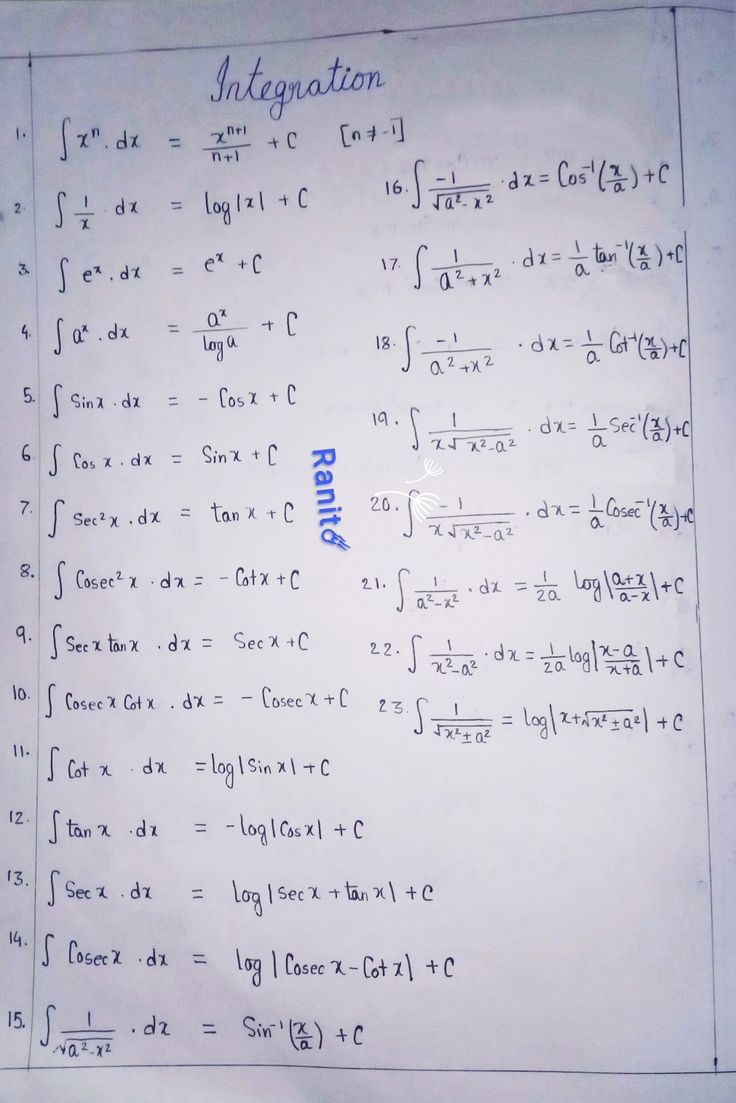 Integration
1. ∫ xⁿ . dx = xⁿ⁺¹/n+1 + C [n ≠ -1]
2. ∫ 1/x dx = log|x| + C
3. ∫ eˣ . dx = eˣ + C
4. ∫ aˣ . dx = aˣ/log a + C
5. ∫ Sinx . dx = - Cosx + C
6. ∫ Cos x . dx = Sinx + C
7. ∫ Sec²x . dx = tan x + C
8. ∫ Cosec²x . dx = - Cotx + C
9. ∫ Sec x tanx . dx = Sec x + C
10. ∫ Cosec x Cotx . dx = - Cosec x + C
11. ∫ Cot x . dx = log|Sin x| + C
12. ∫ tan x . dx = -log|Cos x| + C
13. ∫ Sec x . dx = log|Sec x + tan x| + C
14. ∫ Cosec x . dx = log|Cosec x - Cot x| + C
15. ∫ 1/√a²-x² . dx = Sin⁻¹(x/a) + C
16. ∫ -1/√a²-x² . dx = Cos⁻¹(x/a) + C
17. ∫ 1/a²+x² . dx = 1/a tan⁻¹(x/a) + C
18. ∫ -1/a²+x² . dx = 1/a Cot⁻¹(x/a) + C
19. ∫ 1/x√x²-a² . dx = 1/a Sec⁻¹(x/a) + C
20. ∫ -1/x√x²-a² . dx = 1/a Cosec⁻¹(x/a) + C
21. ∫ 1/a²-x² . dx = 1/2a log|a+x/a-x| + C
22. ∫ 1/x²-a² . dx = 1/2a log|x-a/x+a| + C
23. ∫ 1/√x²±a² = log|x+√x²±a²| + C
Ranit